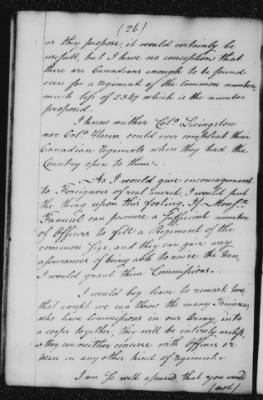 (26)
as they propose, it would certainly be
usefull, but I have no conception that
there are Canadians enough to be found
even for a regiment of the common number,
much less of 2347 which is the number
proposed.
I know neither Colo. Livingston
nor Colo. Hazen could ever compleat their
Canadian Regiments when they had the
Country open to them.
As I would give encouragement
to Foreigners of real merit, I would put
the thing upon this footing. If Monsr.
Faneuil can procure a sufficient number
of Officers to fill a Regiment of the
common size, and they can give any
assurances of being able to raise the Men,
I would grant them Commissions.
I would beg leave to remark here,
that except we can throw the many Foreigners
who have Commissions in our Army, into
a corps together, they will be intirely useless,
as they can neither converse with Officers or
Men in any other kind of regiment.
I am so well assured that you would
(not)